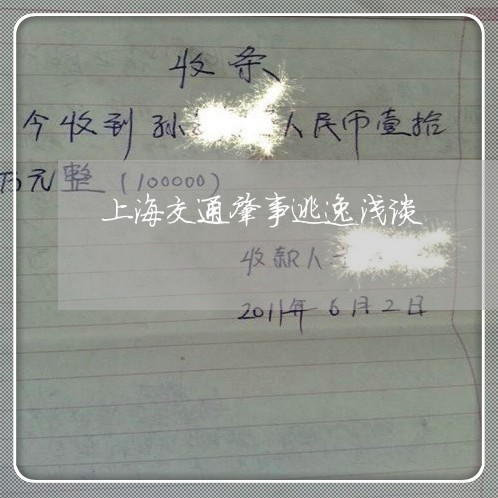 收条
今收到孙 人民币壹拾
万元整（100000）
上海交通肇事逃逸浅谈
收款人
2011年6月2日